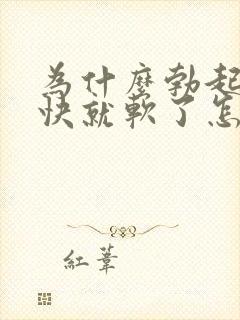 為什麼勃起
快就軟了怎
紅葦